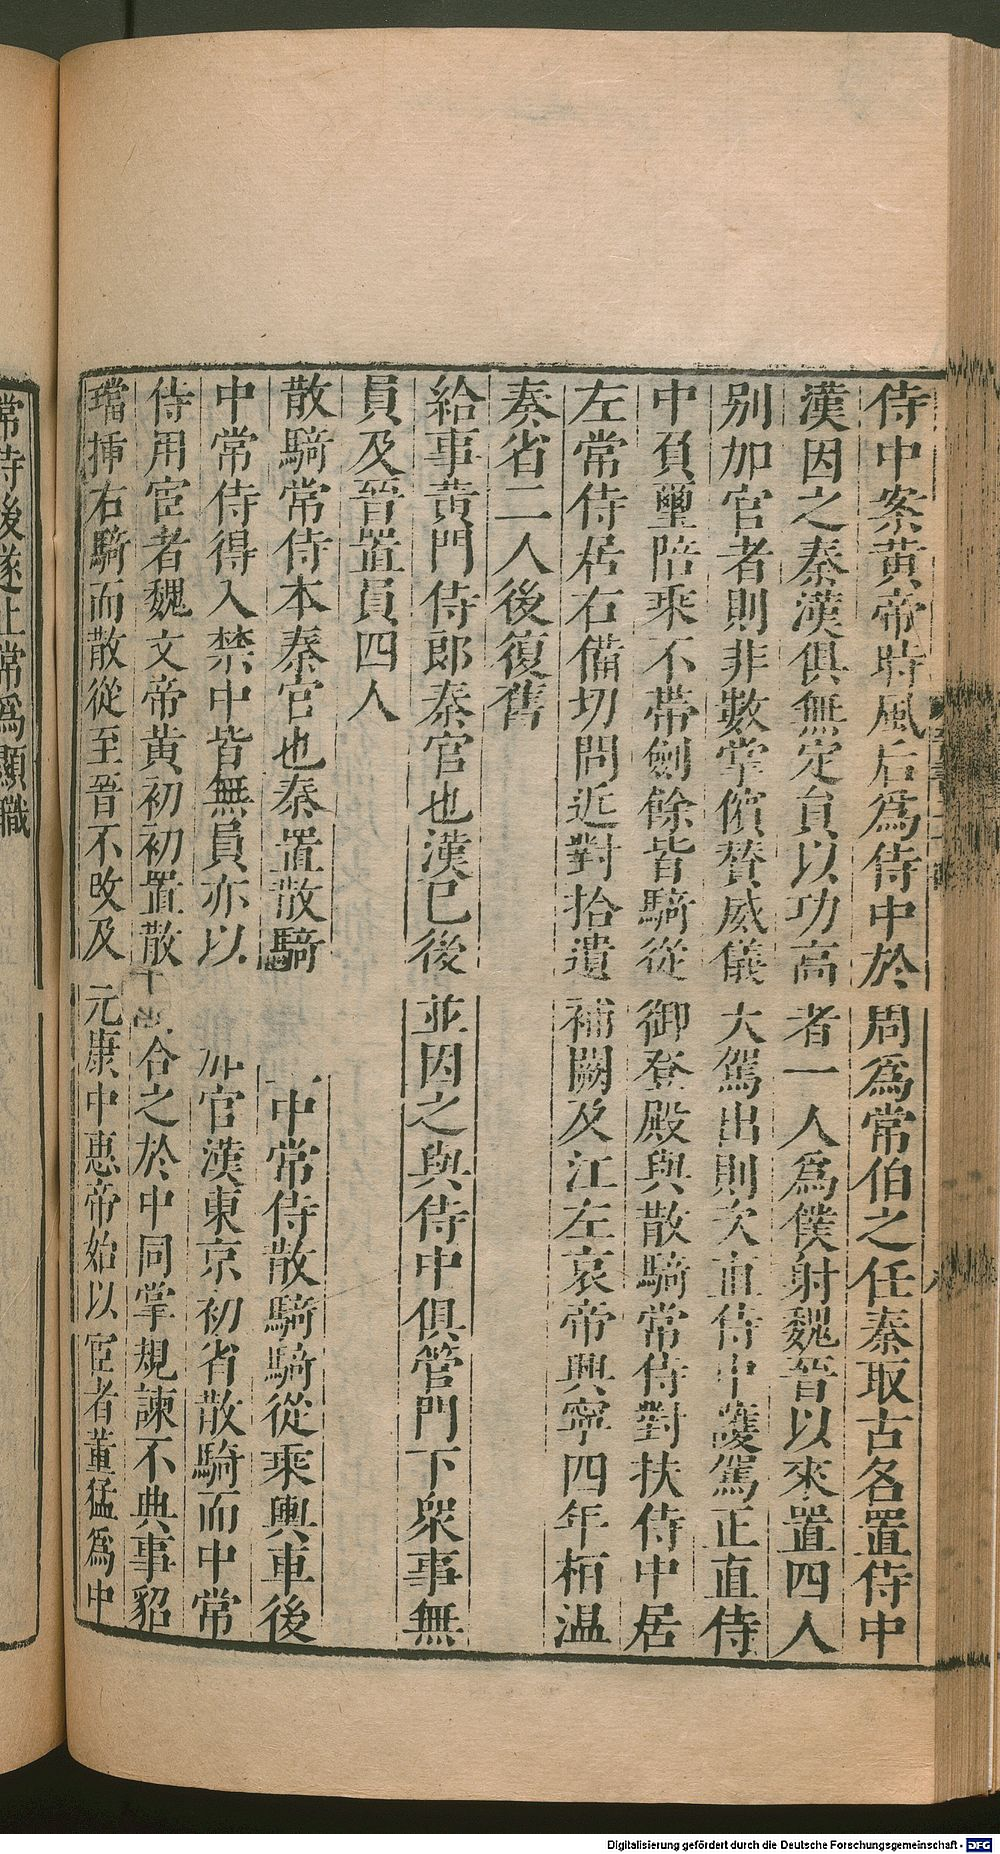 侍中案黃帝時風后爲侍中於周爲常伯之任秦取古名置侍中
漢因之秦漢俱無定員以功高者一人爲僕射魏晉以來置四人
別加官者則非數掌儐贊威儀大駕出則次直侍中護駕正直侍
中負璽陪乘不帶劍餘皆騎從御登殿與散騎常侍對扶侍中居
左常侍居右備切問近對拾遺補闕及江左哀帝興寧四年桓溫
奏省二人後復舊
給事黃門侍郎秦官也漢已後並因之與侍中俱管門下衆事無
員及晉置員四人
散騎常侍本秦官也秦置散騎中常侍散騎騎從乘輿車後
中常侍得入禁中皆無員亦以加官漢東京初省散騎而中常
侍用宦者魏文帝黃初初置散合之於中同掌規諫不典事貂
璫揷右騎而散從至晉不改及元康中惠帝始以宦者董猛爲中
常侍後遂止常爲顯職
Digitalisierung gefördert durch die Deutsche Forschungsgemeinschaft - DFG